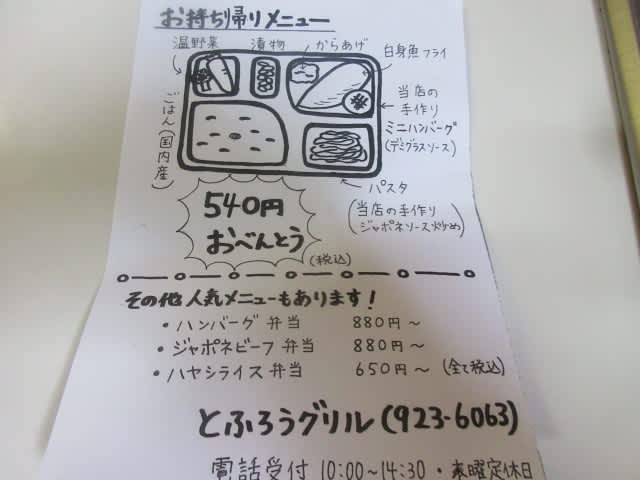 お持ち帰りメニュー
温野菜 漬物 からあげ 白身魚フライ
当店の
手作り
ミニハンバーグ
(デミグラスソース)
ごはん(国内産)
パスタ
(当店の手作り
ジャポネソース炒め)
540円
おべんとう
(税込)
その他人気メニューもあります!
・ハンバーグ弁当 880円~
・ジャポネビーフ弁当 880円~
・ハヤシライス弁当 650円~ (全て税込)
とふろうグリル(923-6063)
電話受付 10:00~14:30・木曜定休日